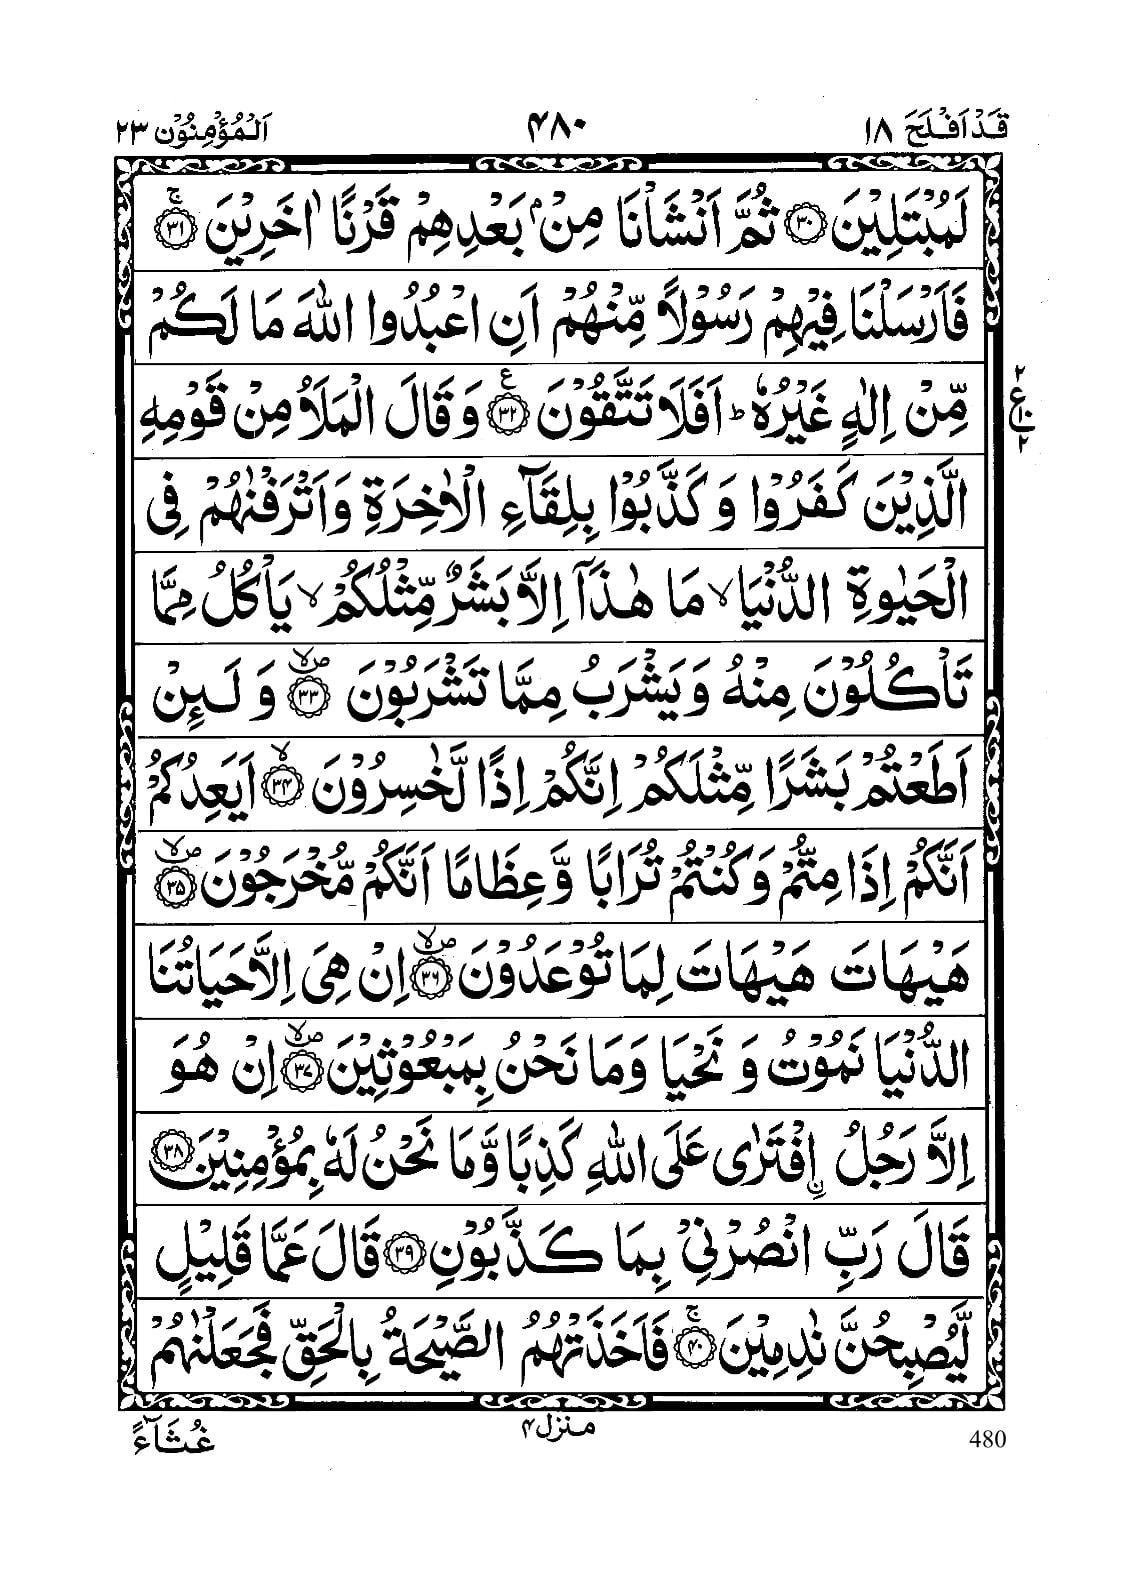 قَدْ اَفْلَحَ ١٨
۴۸۰
اَلْمُؤْمِنُوْن ٢٣
لَمُبْتَلِيْنَ ﴿۳۰﴾ ثُمَّ اَنْشَاْنَا مِنْۢ بَعْدِهِمْ قَرْنًا اٰخَرِيْنَ ۚ﴿۳۱﴾
فَاَرْسَلْنَا فِيْهِمْ رَسُوْلًا مِّنْهُمْ اَنِ اعْبُدُوا اللّٰهَ مَا لَكُمْ
مِّنْ اِلٰهٍ غَيْرُهٗ ؕ اَفَلَا تَتَّقُوْنَ ﴿۳۲﴾ ع وَ قَالَ الْمَلَاُ مِنْ قَوْمِهِ
٢
ع
١٠
٢
الَّذِيْنَ كَفَرُوْا وَ كَذَّبُوْا بِلِقَآءِ الْاٰخِرَةِ وَ اَتْرَفْنٰهُمْ فِی
الْحَيٰوةِ الدُّنْيَا ۙ مَا هٰذَاۤ اِلَّا بَشَرٌ مِّثْلُكُمْ ۙ يَاْكُلُ مِمَّا
تَاْكُلُوْنَ مِنْهُ وَ يَشْرَبُ مِمَّا تَشْرَبُوْنَ ﴿۳۳﴾ صلا وَ لَىِٕنْ
اَطَعْتُمْ بَشَرًا مِّثْلَكُمْ اِنَّكُمْ اِذًا لَّخٰسِرُوْنَ ۙ﴿۳۴﴾ اَيَعِدُكُمْ
اَنَّكُمْ اِذَا مِتُّمْ وَ كُنْتُمْ تُرَابًا وَّ عِظَامًا اَنَّكُمْ مُّخْرَجُوْنَ ﴿۳۵﴾ صلا
هَيْهَاتَ هَيْهَاتَ لِمَا تُوْعَدُوْنَ ﴿۳۶﴾ صلا اِنْ هِیَ اِلَّا حَيَاتُنَا
الدُّنْيَا نَمُوْتُ وَ نَحْيَا وَ مَا نَحْنُ بِمَبْعُوْثِيْنَ ﴿۳۷﴾ صلا اِنْ هُوَ
اِلَّا رَجُلُ ِ۟افْتَرٰی عَلَی اللّٰهِ كَذِبًا وَّ مَا نَحْنُ لَهٗ بِمُؤْمِنِيْنَ ﴿۳۸﴾
قَالَ رَبِّ انْصُرْنِیْ بِمَا كَذَّبُوْنِ ﴿۳۹﴾ قَالَ عَمَّا قَلِيْلٍ
لَّيُصْبِحُنَّ نٰدِمِيْنَ ۚ﴿۴۰﴾ فَاَخَذَتْهُمُ الصَّيْحَةُ بِالْحَقِّ فَجَعَلْنٰهُمْ
480
منزل ۴
غُثَآءً